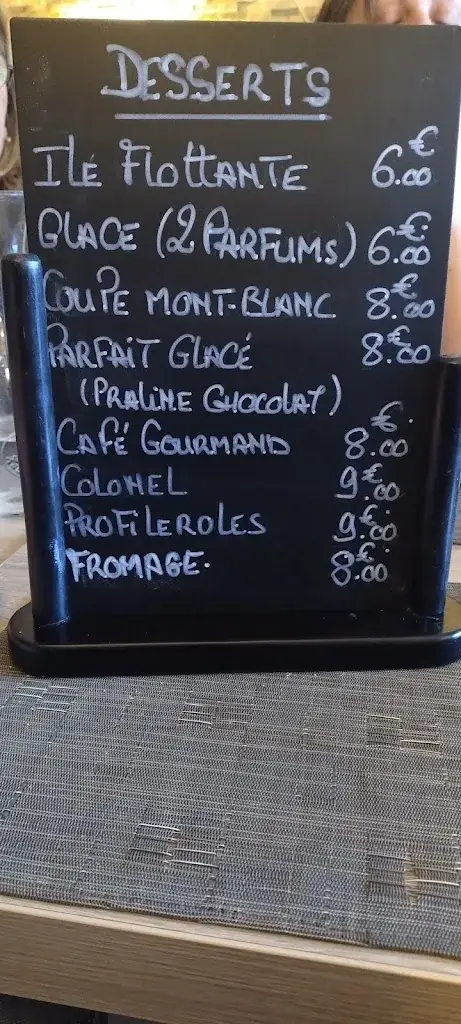 DESSERTS
ILE FLOTTANTE 6.00€
GLACE (2 PARFUMS) 6.00€
COUPE MONT-BLANC 8.00€
PARFAIT GLACÉ 8.00€
(PRALINE CHOCOLAT)
CAFÉ GOURMAND 8.00€
COLONEL 9.00€
PROFILEROLES 9.00€
FROMAGE. 8.00€